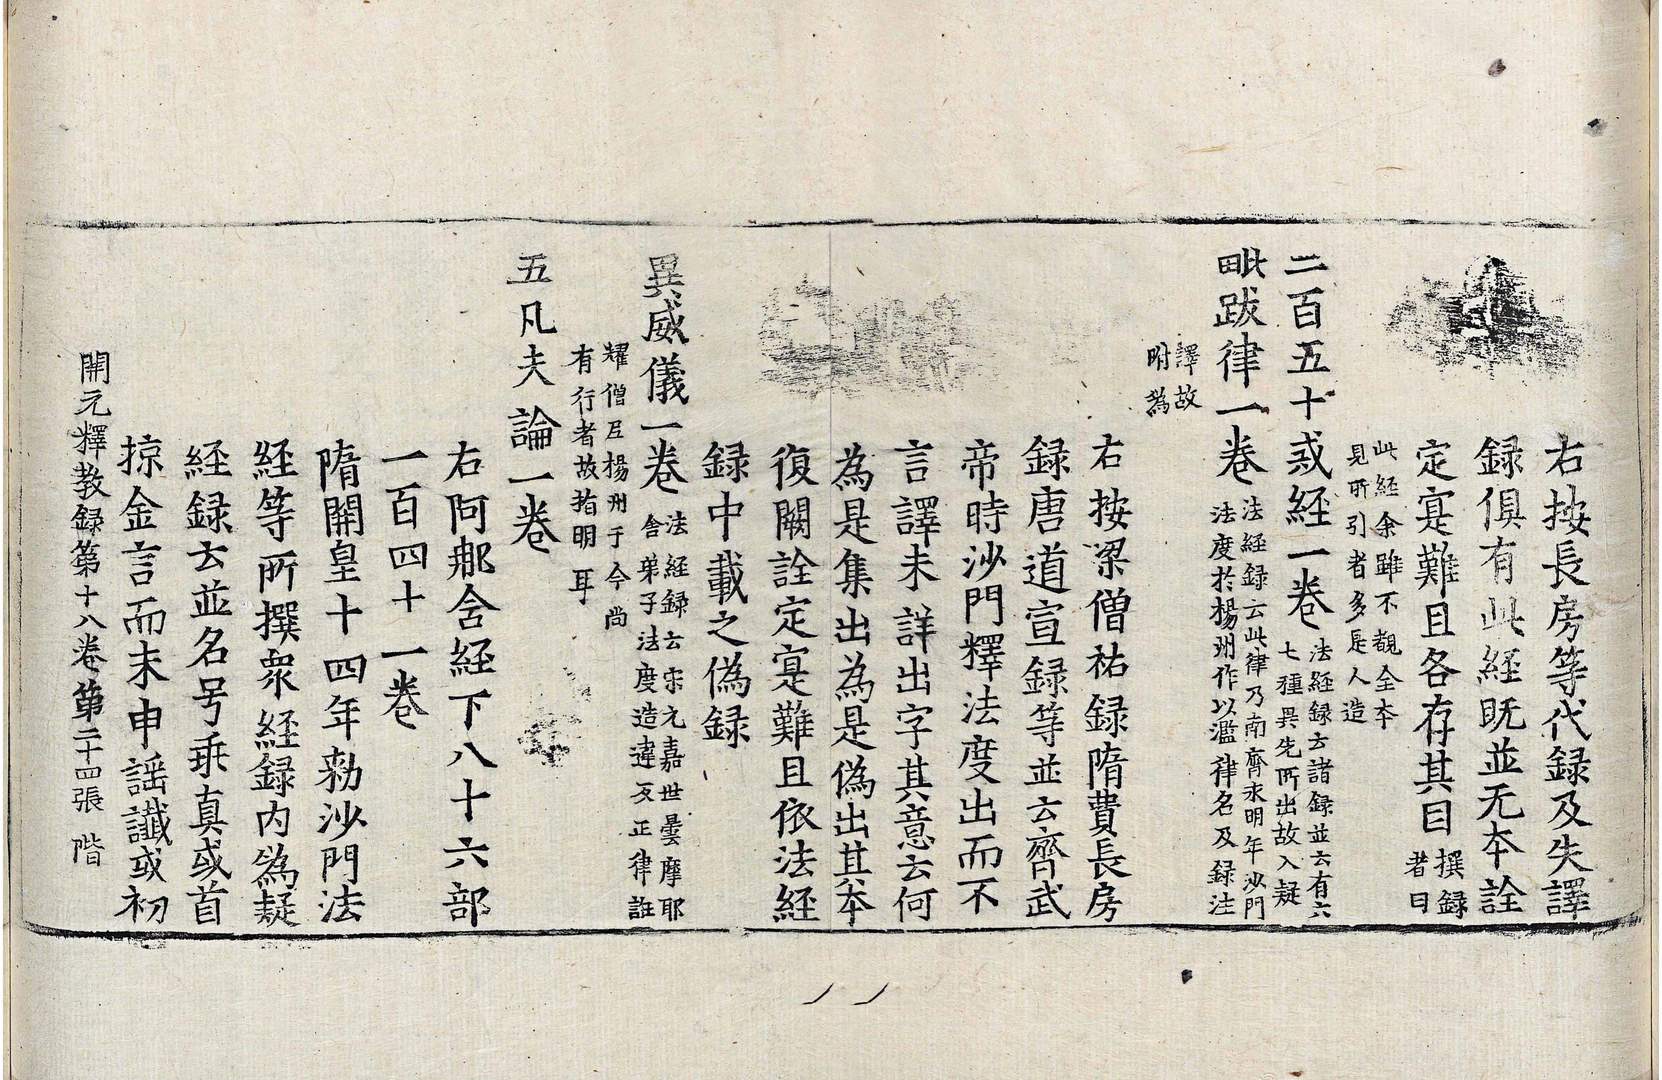 右按長房等代録及失譯
録俱有此経旣並无本詮
定寔難且各存其目撰録者曰
此経余雖不覩全本
見所引者多是人造
二百五十戒経一卷法経録云諸録並云有六
七種異先所出故入疑
毗跋律一卷法経録云此律乃南齊永明年沙門
法度於楊州作以濫律名及録注
譯故
附為
右按梁僧祐録隋費長房
録唐道宣録等並云齊武
帝時沙門釋法度出而不
言譯未詳出字其意云何
為是集出為是偽出其本
復闕詮定寔難且依法経
録中載之偽録
異威儀一卷法経録云宋元嘉世曇摩耶
舍弟子法度造違反正律誑
耀僧尼楊州于今尚
有行者故指明耳
五凡夫論一卷
右阿郍含経下八十六部
一百四十一卷
隋開皇十四年勑沙門法
経等所撰衆経録内為疑
経録云並名号乖真或首
掠金言而末申謡讖或初
開元釋教録第十八卷第二十四張 階